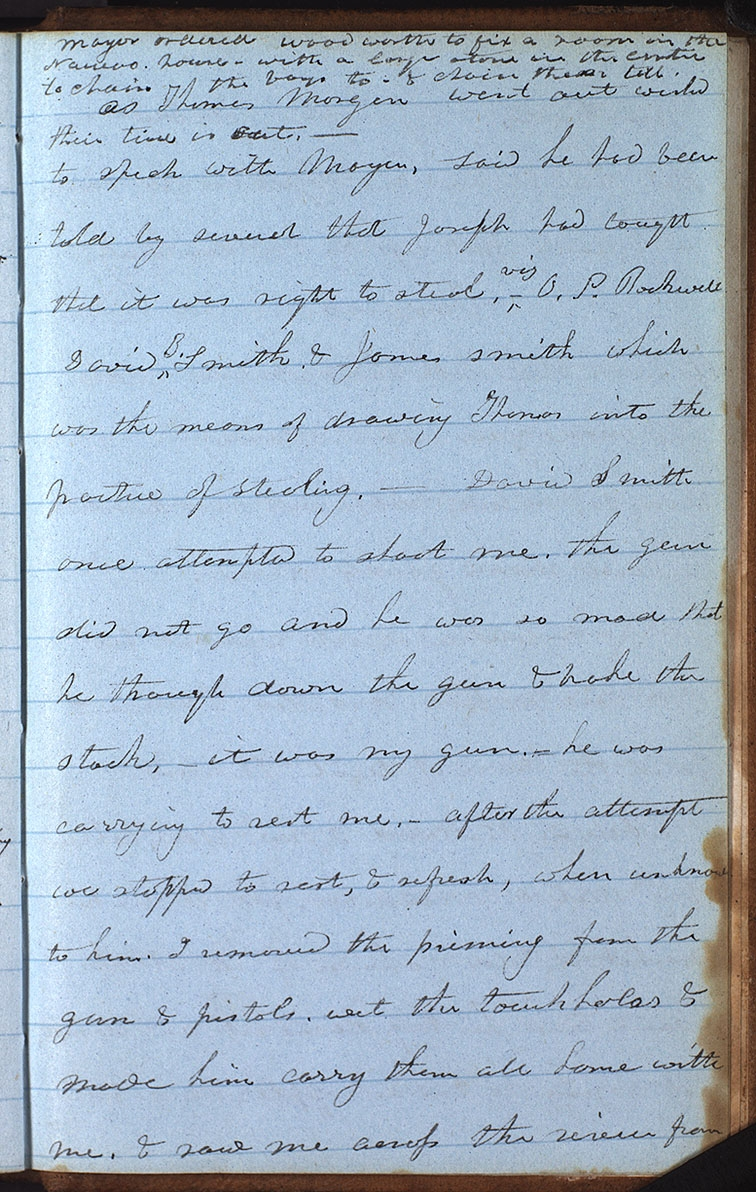 mayor ordered woodworth to fix a room in the
Nauvoo. house - with a large stone in the centre
to chain the boys to - & chain them till.
as Thomas Morgan went out wished
their time is out. —
to speak with Mayor, said he had been
told by several that Joseph had taught
that it was right to steal, - viz O. P. Rockwell
David B. Smith. & James smith which
was the means of drawing Thomas into the
practice of stealing. — David Smith
once attempted to shoot me. the gun
did not go and he was so mad that
he through down the gun & broke the
stock, - it was my gun. - he was
carrying to rest me. - after the attempt
we stopped to rest, & refresh, when unknown
to him. I removed the priming from the
gun & pistols. wet the touch holes &
made him carry them all home with
me. & row me across the river from